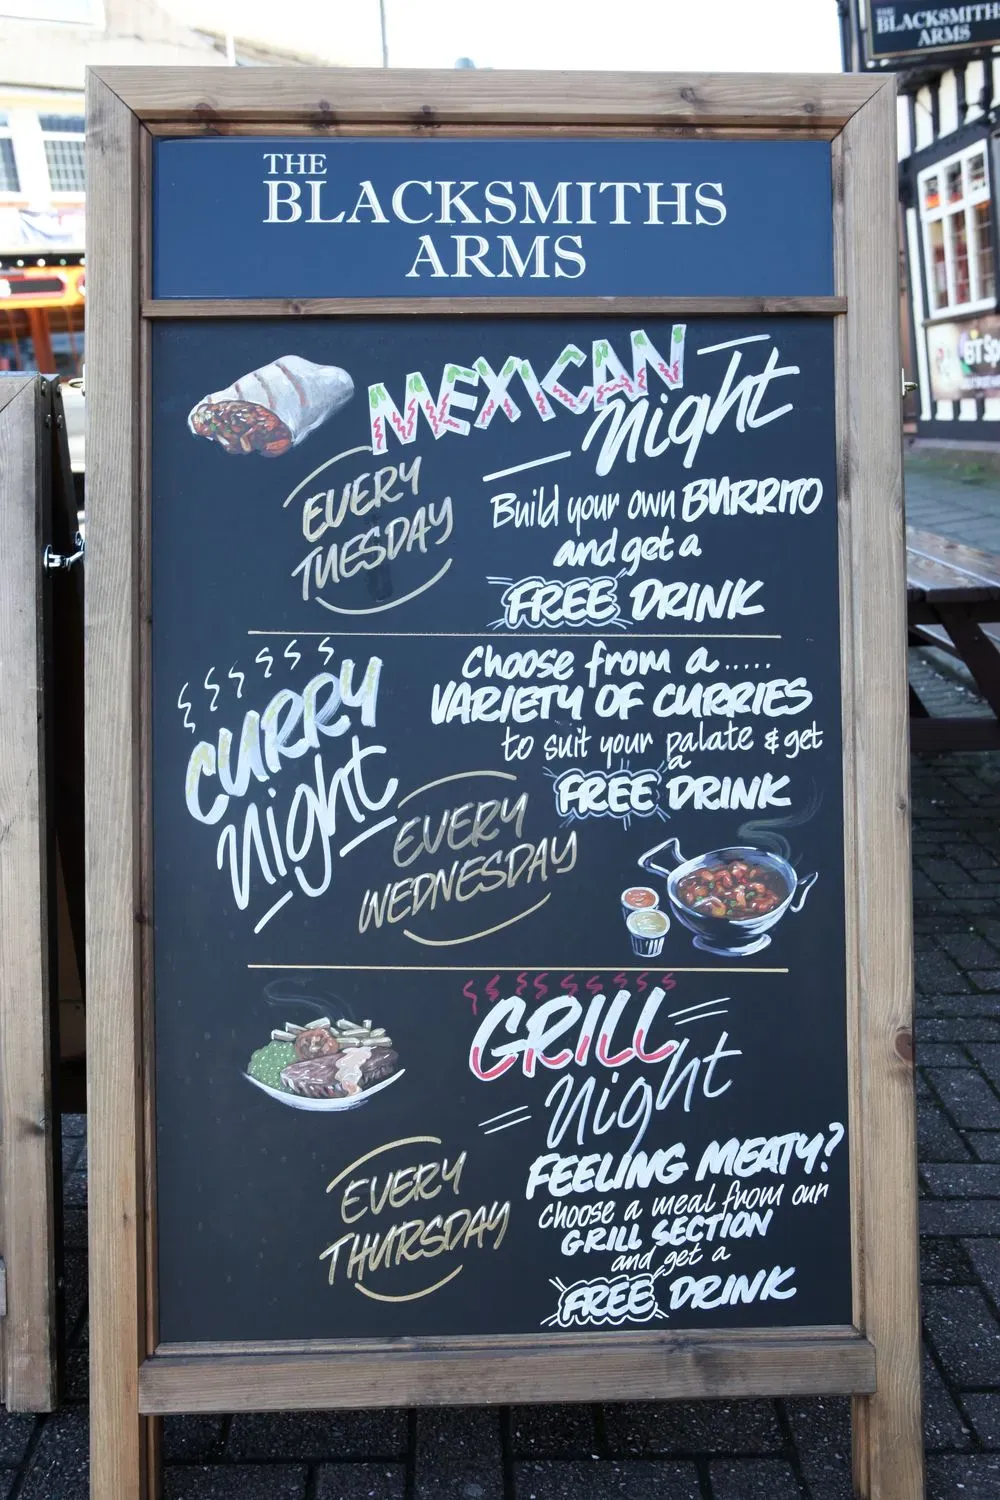 THE
BLACKSMITHS
ARMS
THE
BLACKSMITHS
ARMS
MEXICAN
Night
EVERY
TUESDAY
Build your own BURRITO
and get a
FREE DRINK
CURRY
Night
EVERY
WEDNESDAY
Choose from a.....
VARIETY OF CURRIES
to suit your palate & get
a
FREE DRINK
GRILL
Night
EVERY
THURSDAY
FEELING MEATY?
Choose a meal from our
GRILL SECTION
and get a
FREE DRINK